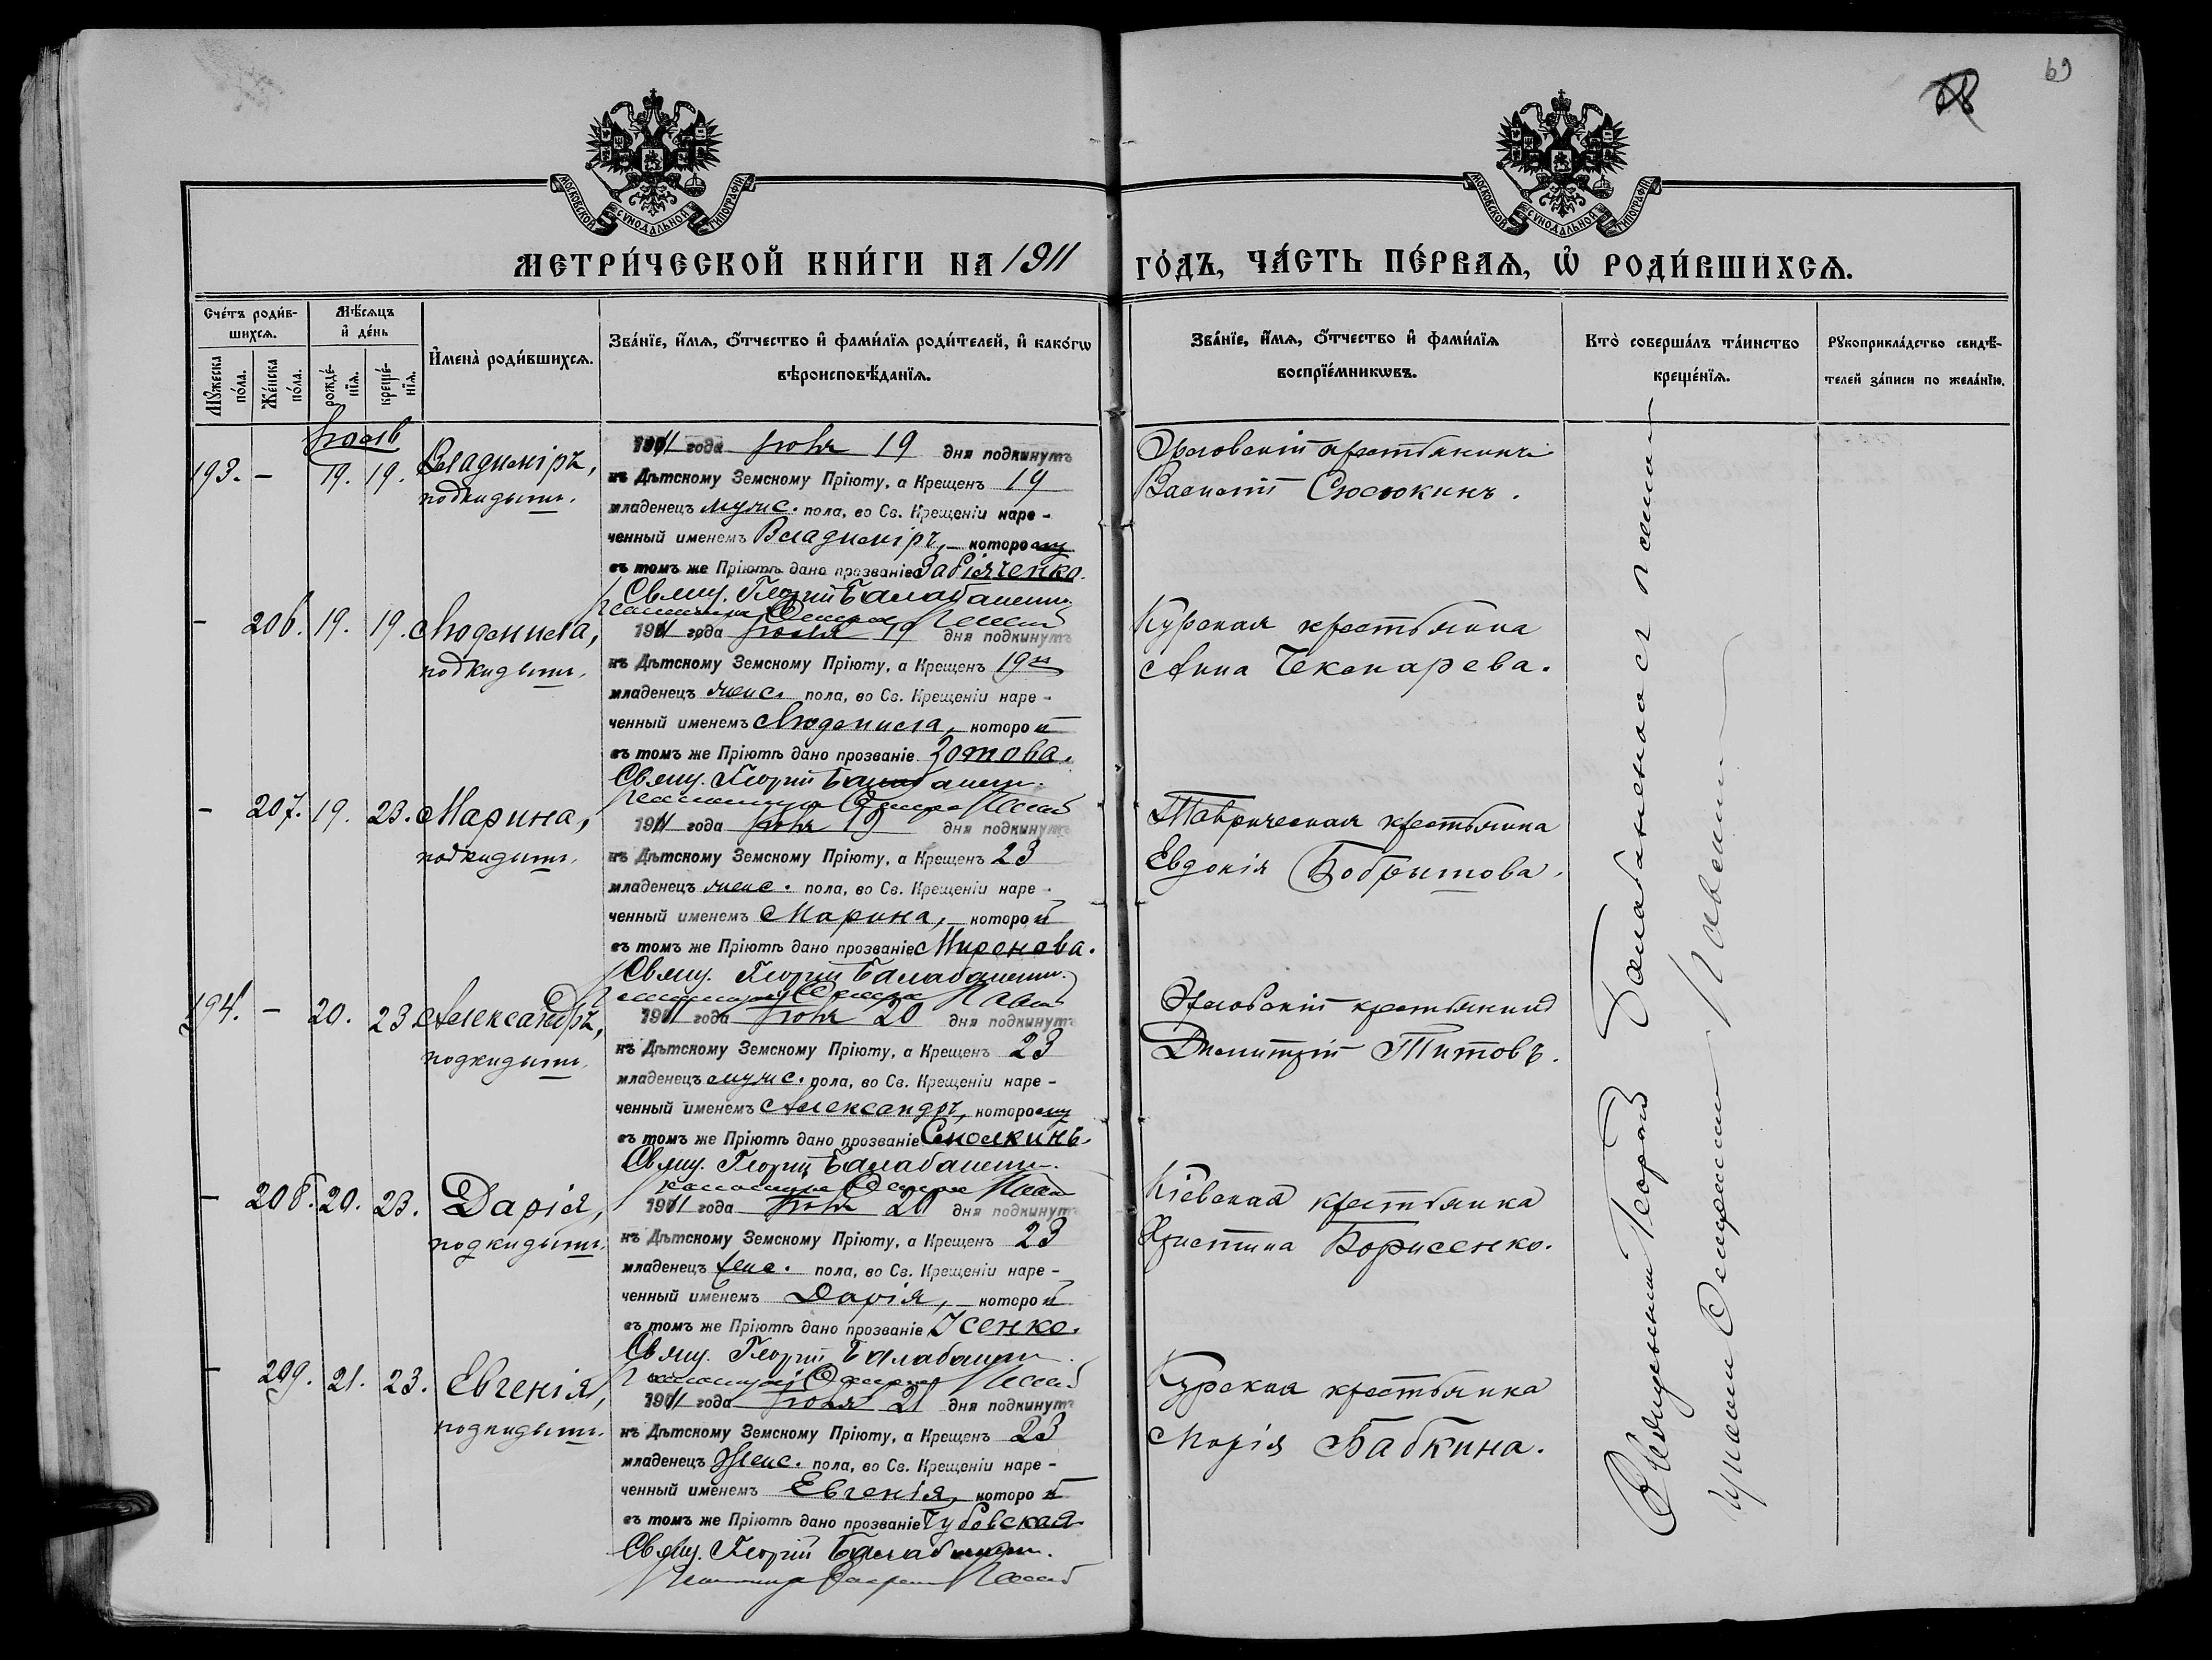 69
68
МОСКОВСКОЙ СѴНОДАЛЬНОЙ ТИПОГРАФІИ
МОСКОВСКОЙ СѴНОДАЛЬНОЙ ТИПОГРАФІИ
МЕТРИ́ЧЕСКОЙ КНИ́ГИ НА 1911 ГО́ДЪ, ЧА́СТЬ ПЕ́РВАѦ, Ѡ҆ РОДИ́ВШИХСѦ.
Сче́тъ роди́в-
шихсѧ.
Мꙋ́жеска по́ла.
Же́нска по́ла.
Мѣ́сѧцъ
и҆ де́нь
рожде́-нїѧ.
креще́-нїѧ.
И҆мена̀ роди́вшихсѧ.
Зва́нїе, и҆́мѧ, ѻ҆́тчество и҆ фами́лїѧ роди́телей, и҆ како́гѡ
вѣроисповѣ́данїѧ.
Зва́нїе, и҆́мѧ, ѻ҆́тчество и҆ фами́лїѧ
воспрїе́мникѡвъ.
Кто̀ соверша́лъ та́инство
креще́нїѧ.
Рꙋкоприкла́дство свидѣ́-
телей за́писи по жела́нїю.
Іюль
193. – 19. 19. Владиміръ,
подкидышъ.
1911 года Іюля 19 дня подкинутъ
къ Дѣтскому Земскому Пріюту, а Крещенъ 19
младенецъ муж. пола, во Св. Крещеніи наре-
ченный именемъ Владиміръ, – которому
въ томъ же Пріютѣ дано прозваніе Забіяченко.
Свящ. Георгій Балабаненко
Орловскій крестьянинъ
Василій Сюсюкинъ.
– 206. 19. 19. Людмила,
подкидышъ.
1911 года Іюля 19 дня подкинутъ
къ Дѣтскому Земскому Пріюту, а Крещенъ 19
младенецъ женс. пола, во Св. Крещеніи наре-
ченный именемъ Людмила, – которой
въ томъ же Пріютѣ дано прозваніе Зотова.
Свящ. Георгій Балабаненко.
Курская крестьянка
Анна Чекмарева.
– 207. 19. 23. Марина,
подкидышъ.
1911 года Іюля 19 дня подкинутъ
къ Дѣтскому Земскому Пріюту, а Крещенъ 23
младенецъ женс. пола, во Св. Крещеніи наре-
ченный именемъ Марина, – которой
въ томъ же Пріютѣ дано прозваніе Миронова.
Свящ. Георгій Балабаненко.
Таврическая крестьянка
Евдокія Бобрышова.
194. – 20. 23 Александръ,
подкидышъ.
1911 года Іюля 20 дня подкинутъ
къ Дѣтскому Земскому Пріюту, а Крещенъ 23
младенецъ муж. пола, во Св. Крещеніи наре-
ченный именемъ Александръ, которому
въ томъ же Пріютѣ дано прозваніе Смолкинъ.
Свящ. Георгій Балабаненко.
Орловскій крестьянинъ
Дмитрій Титовъ.
– 208. 20. 23. Дарія,
подкидышъ.
1911 года Іюля 20 дня подкинутъ
къ Дѣтскому Земскому Пріюту, а Крещенъ 23
младенецъ женс. пола, во Св. Крещеніи наре-
ченный именемъ Дарія, – которой
въ томъ же Пріютѣ дано прозваніе Усенко.
Свящ. Георгій Балабаненко.
Кіевская крестьянка
Христина Борисенко.
– 209. 21. 23. Евгенія,
подкидышъ.
1911 года Іюля 21 дня подкинутъ
къ Дѣтскому Земскому Пріюту, а Крещенъ 23
младенецъ Женс. пола, во Св. Крещеніи наре-
ченный именемъ Евгенія, которой
въ томъ же Пріютѣ дано прозваніе Губовская
Свящ. Георгій Балабаненко.
Курская крестьянка
Марія Бабкина.
Священникъ Георгій Балабаненко съ псаломщ-